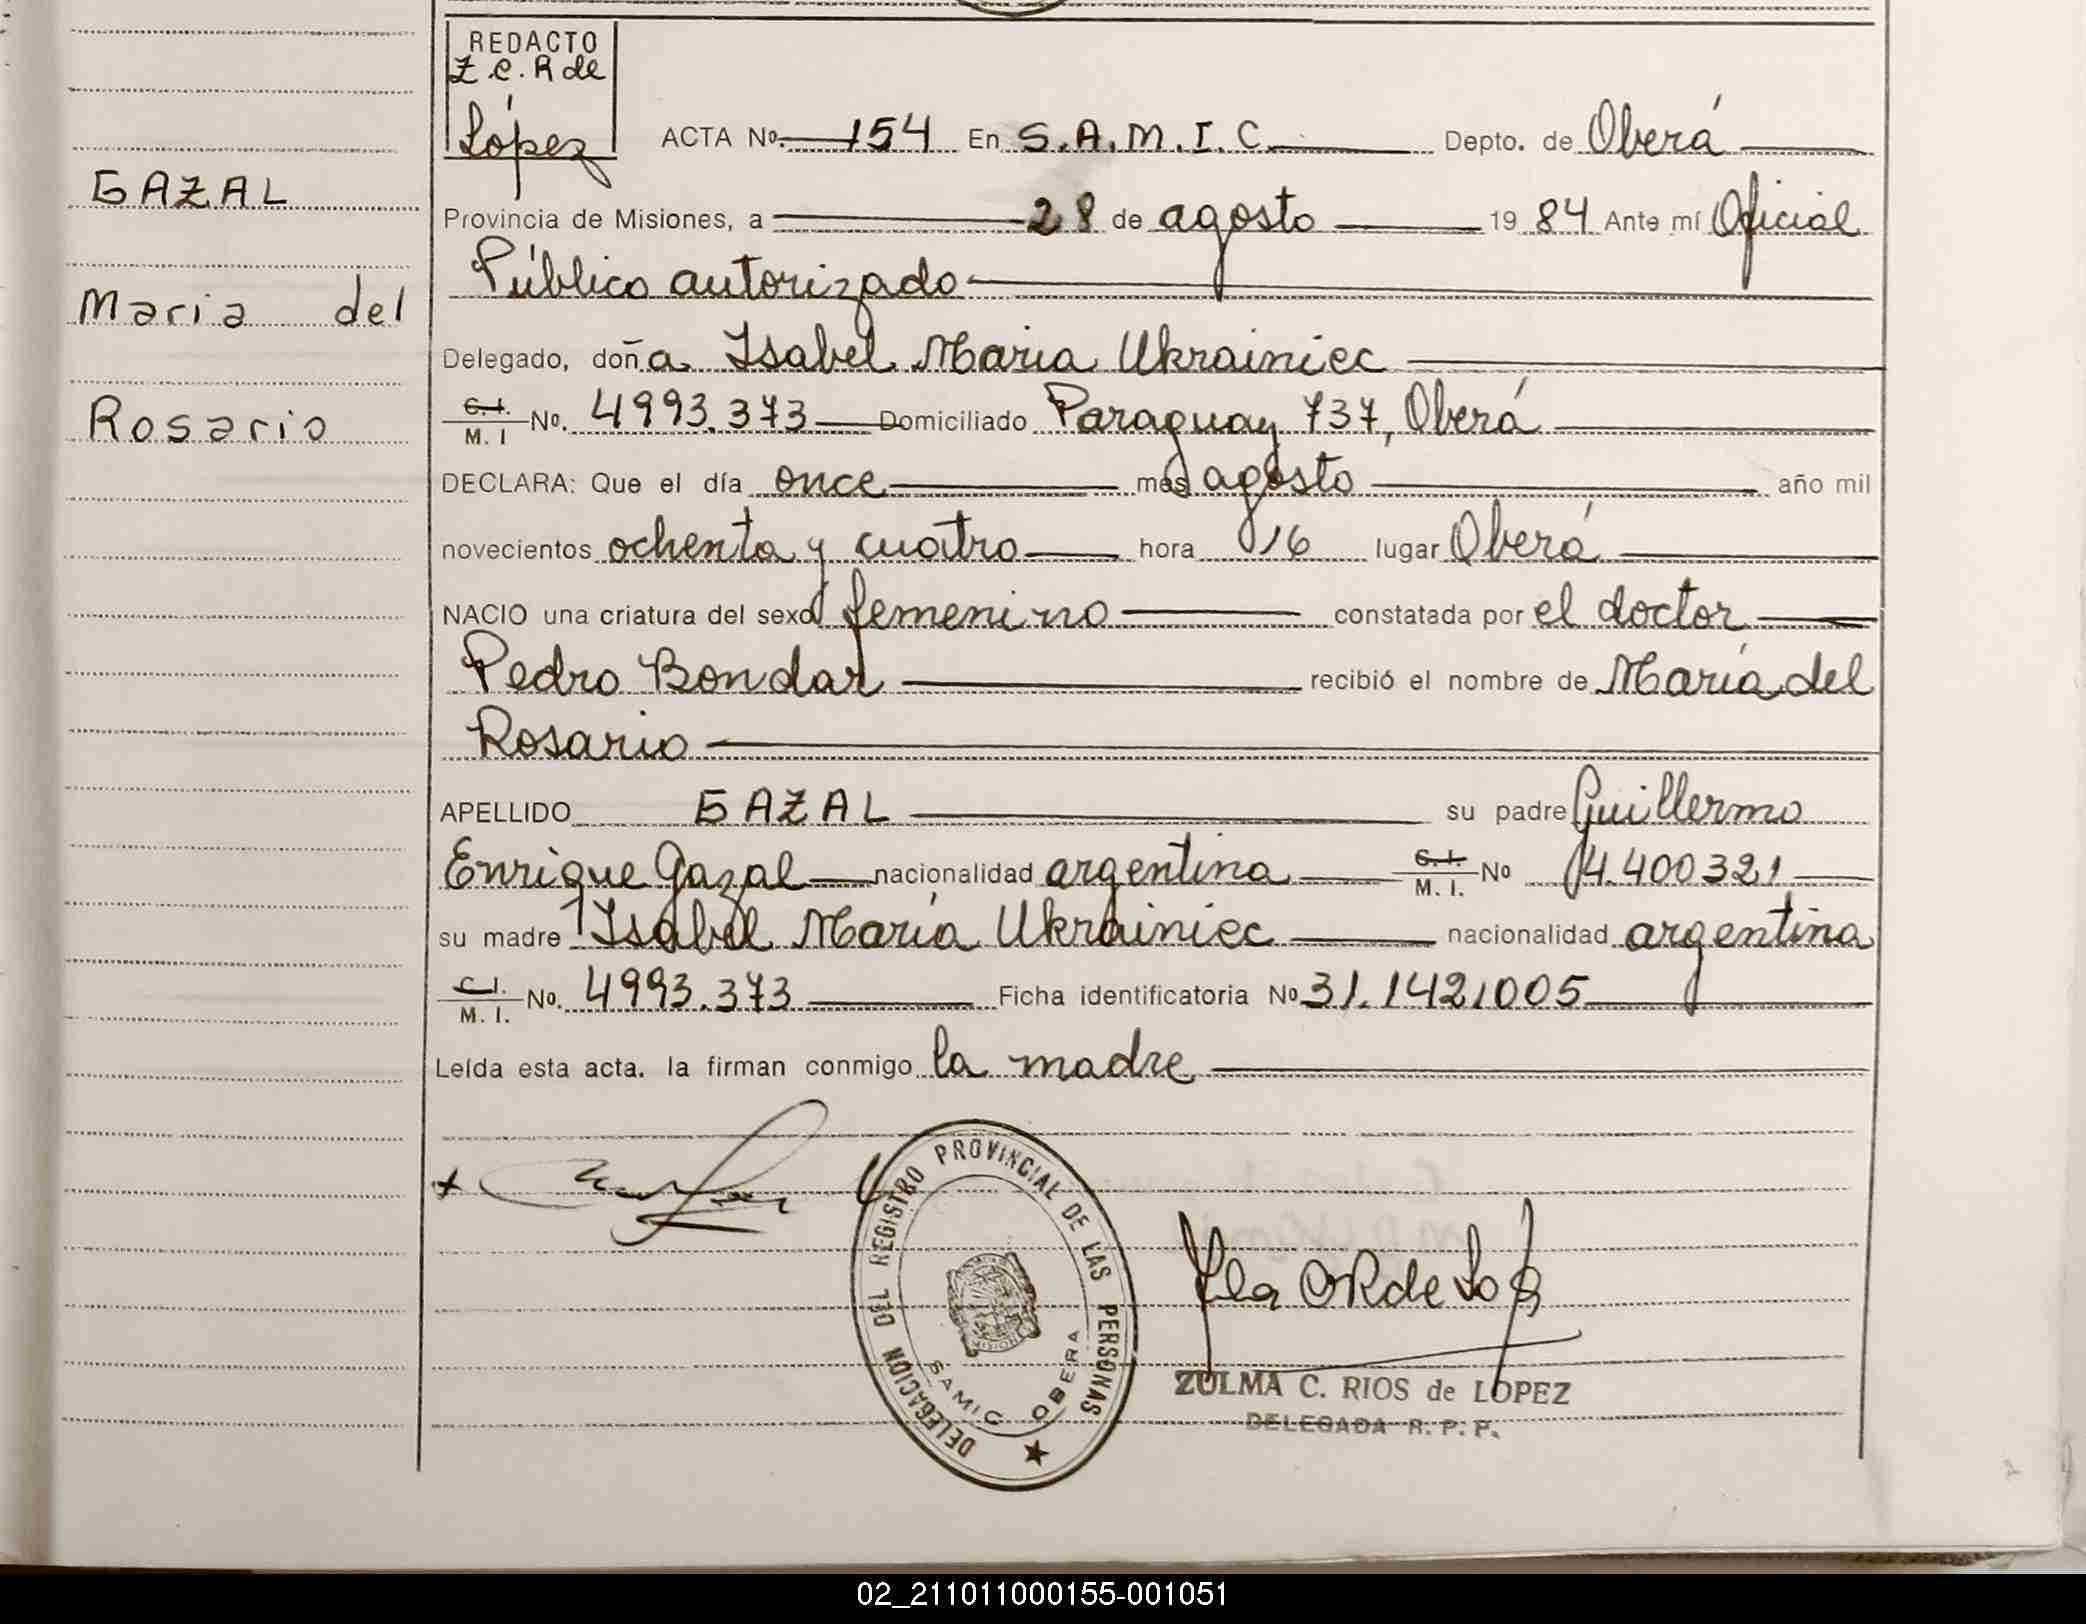 REDACTO
Z.C.R de
López
ACTA No. 154 En S.A.M.I.C. Depto. de Oberá
GAZAL
Provincia de Misiones, a 28 de agosto 19 84 Ante mí Oficial
Público autorizado
Maria del
Delegado, doña Isabel Maria Ukrainiec
Rosario
C.I. M. I No. 4993.373 Domiciliado Paraguay 737, Oberá
DECLARA: Que el día once mes agosto año mil
novecientos ochenta y cuatro hora 16 lugar Oberá
NACIO una criatura del sexo femenino constatada por el doctor
Pedro Bondar recibió el nombre de María del
Rosario
APELLIDO GAZAL su padre Guillermo
Enrique Gazal nacionalidad argentina C.I. M. I. No 4.400321
su madre Isabel María Ukrainiec nacionalidad argentina
C.I. M. I. No. 4993.373 Ficha identificatoria No 31.142.005
Leída esta acta. la firman conmigo la madre
DELEGACION DEL REGISTRO PROVINCIAL DE LAS PERSONAS
SAMIC OBERA
ZULMA C. RIOS de LOPEZ
DELEGADA R. P. P.
02_211011000155-001051